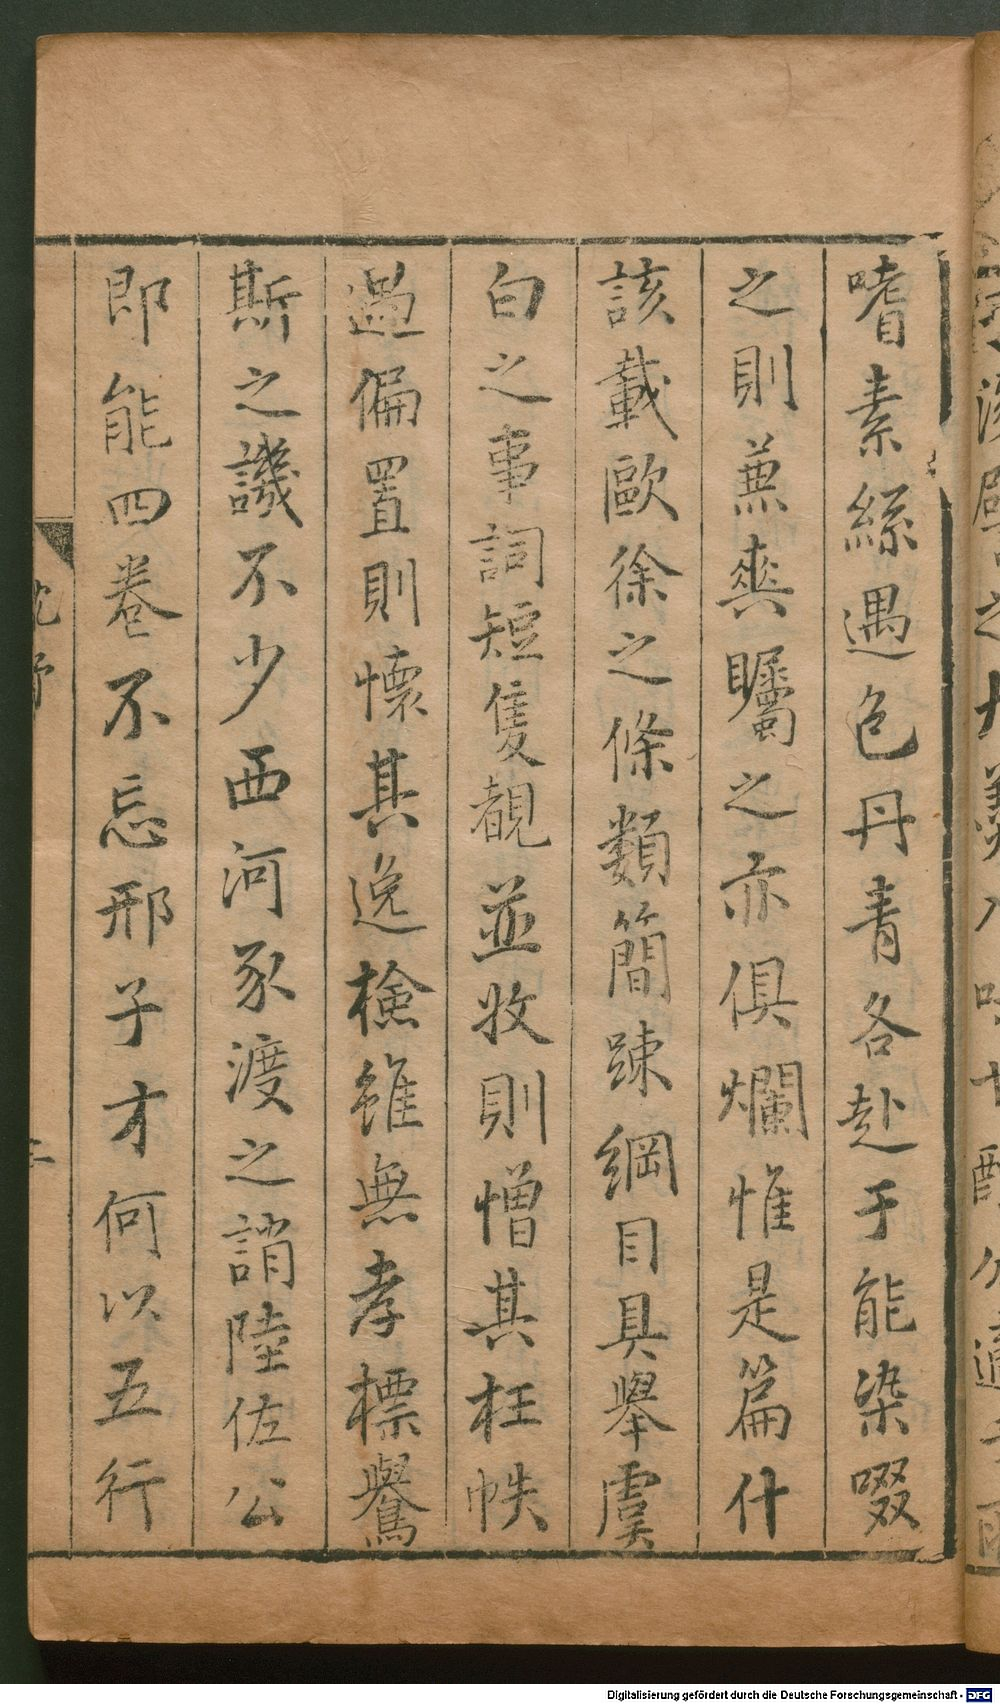 嗜素絲遇色丹青各赴于能染啜
之則兼爽矚之亦俱爛惟是篇什
該載歐徐之條類簡踈綱目具舉虞
白之事詞短隻覩並收則憎其枉帙
過偏置則懷其逸檢雖無孝標譽
斯之譏不少西河豕渡之誚陸佐公
即能四卷不忘邢子才何以五行
Digitalisierung gefördert durch die Deutsche Forschungsgemeinschaft - DFG